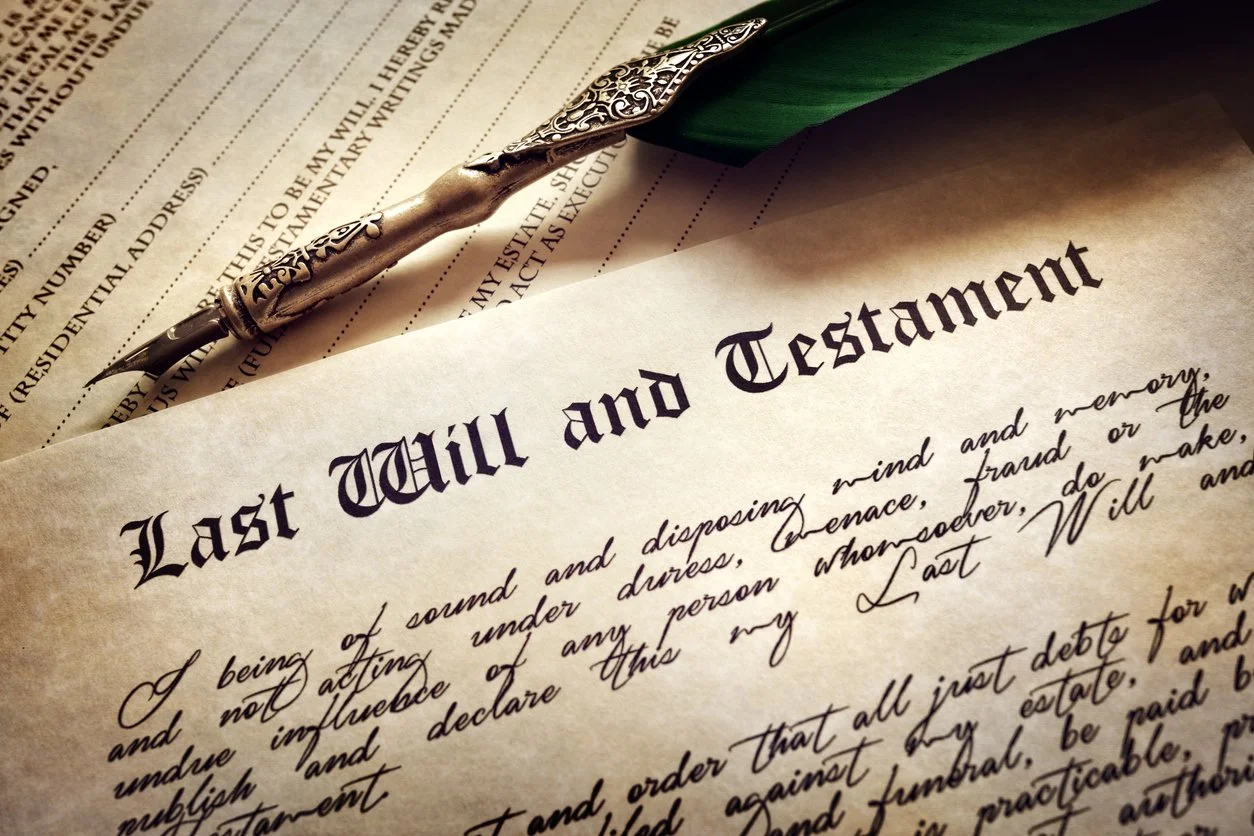 BY ME
OF LEGAL AGE
THAT THIS LAS
WITHOUT UNDUE
IGNED,
TITY NUMBER)
(RESIDENTIAL ADDRESS)
EBY THIS TO BE MY WILL. I HEREBY R
US WIL STAMENTARY WRITINGS MAD
F (FUL
F MY ESTATE. SHO E BE
ACT AS EXECUTO
Last Will and Testament
I being of sound and disposing mind and memory,
and not acting under duress, menace, fraud or the
undue influence of any person whomsoever, do make,
publish and declare this my Last Will and
stament.
t and order that all just debts for w
iled against my estate, and
and funeral, be paid b
is practicable, pr
t authori